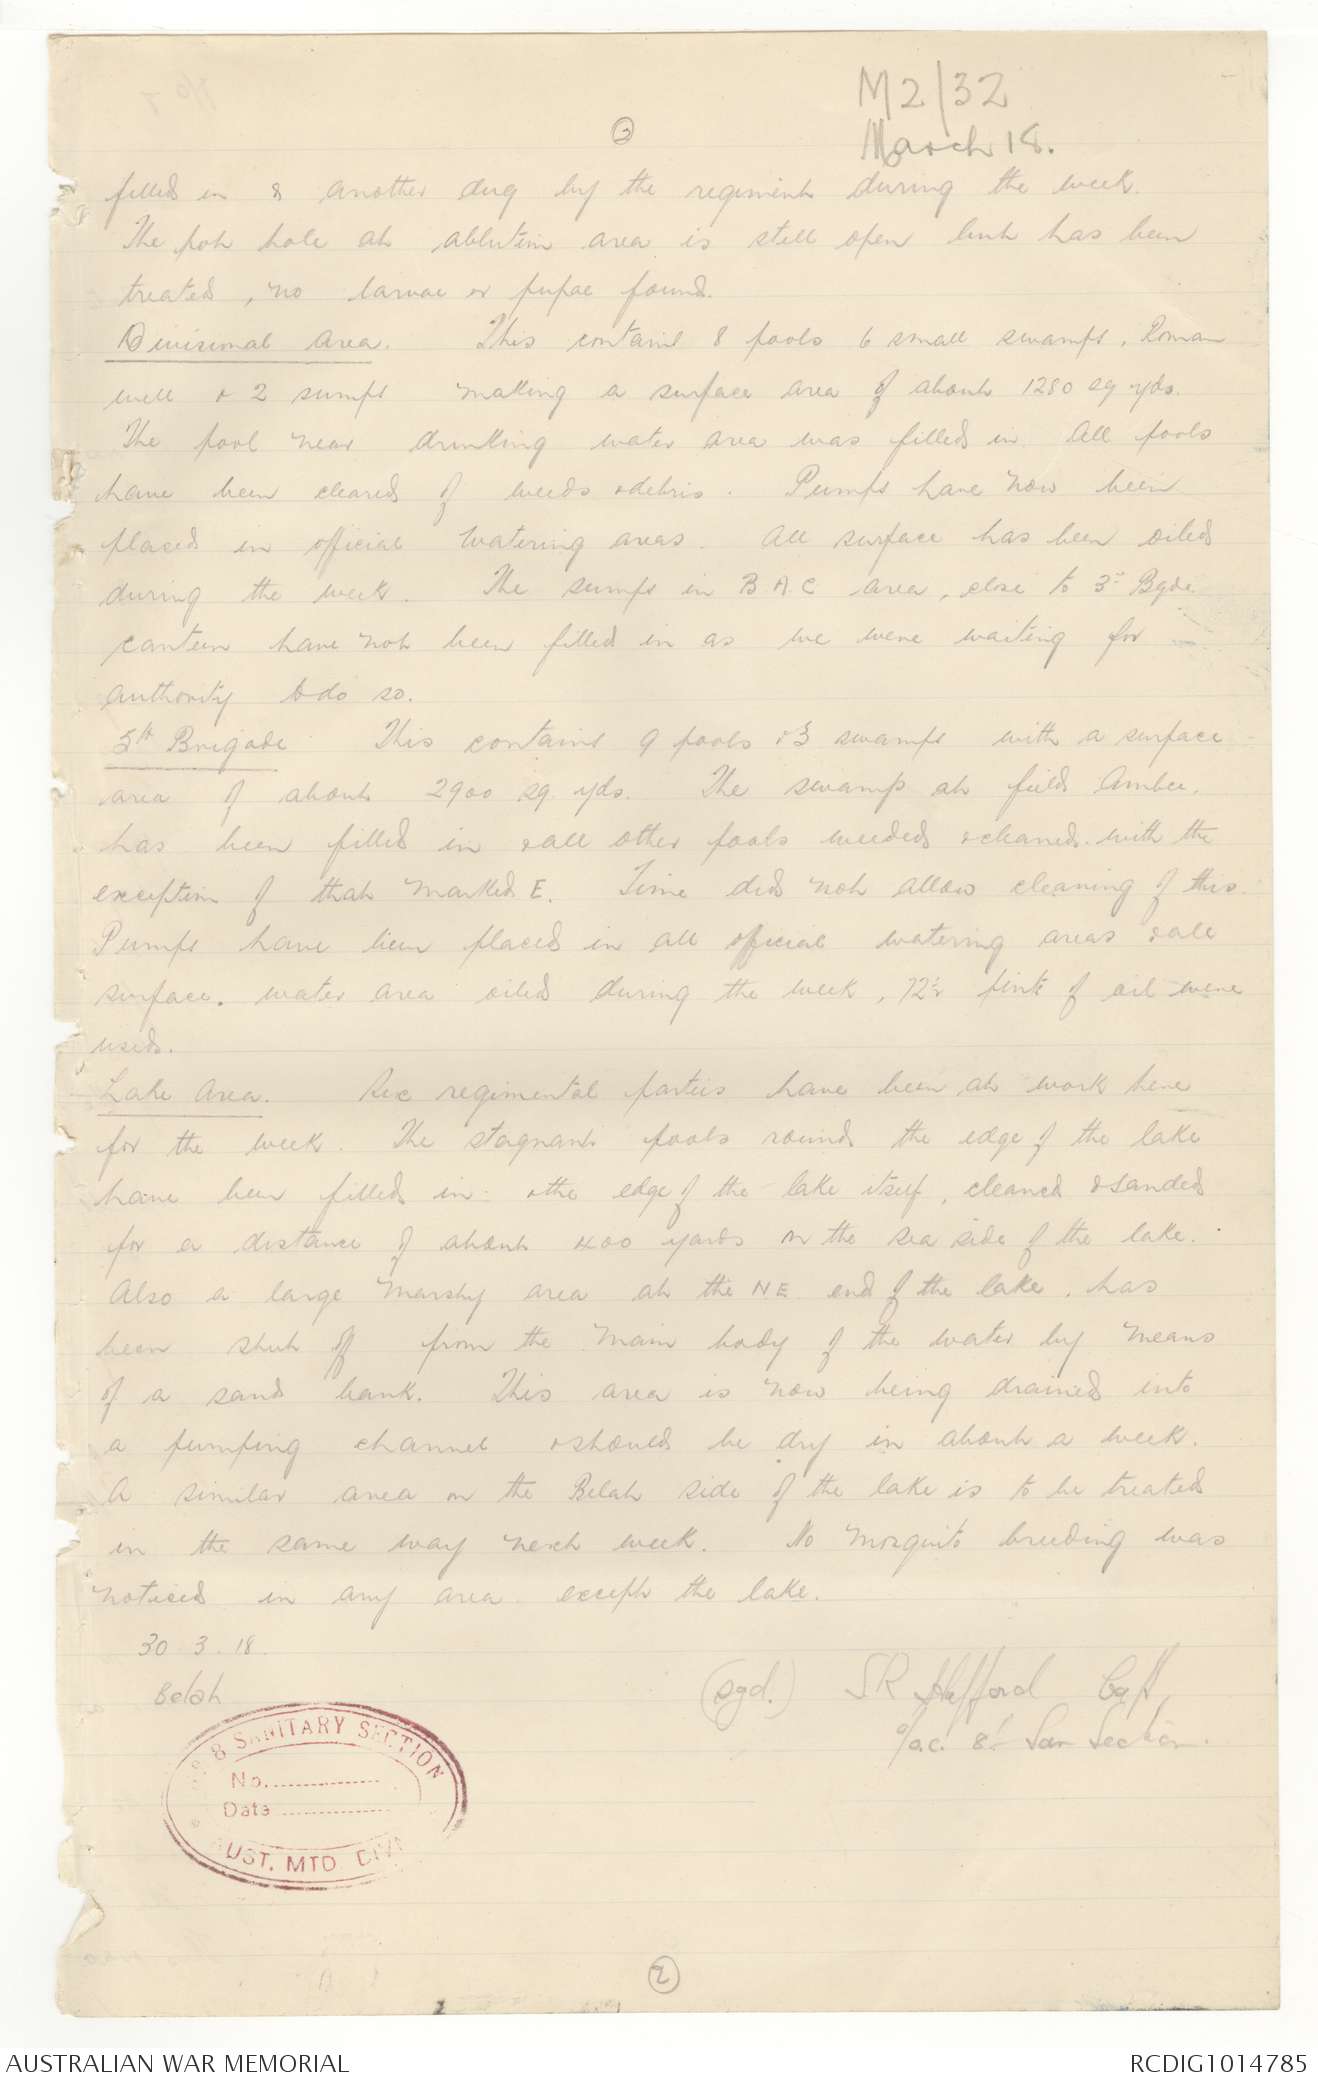 M2/32
March 18.
2
filled in & another dug by the regiment during the week.
The pot hole at ablution area is still open but has been
treated, no larvae or pupae found.
Divisional Area. This contains 8 pools 6 small swamps, Roman
well & 2 sumps making a surface area of about 1280 sq yds.
The pool near drinking water area was filled in. All pools
have been cleared of weeds & debris. Pumps have now been
placed in official watering areas. All surface has been oiled
during the week. The sumps in B A C area, close to 3rd Bgde
canteen have not been filled in as we were waiting for
authority to do so.
5th Brigade This contains 9 pools & 3 swamps with a surface
area of about 2900 sq. yds. The swamp at field Ambce.
has been filled in & all other pools weeded & cleaned with the
exception of that marked E. Time did not allow cleaning of this.
Pumps have been placed in all official watering areas & all
surface water area oiled during the week, 72½ pints of oil were
used.
Lake Area. Six regimental parties have been at work here
for the week. The stagnant pools round the edge of the lake
have been filled in & the edge of the lake itself, cleaned & sanded
for a distance of about 400 yards on the sea side of the lake.
Also a large marshy area at the NE end of the lake, has
been shut off from the main body of the water by means
of a sand bank. This area is now being drained into
a pumping channel & should be dry in about a week.
A similar area on the Belah side of the lake is to be treated
in the same way next week. No mosquito breeding was
noticed in any area except the lake.
30 3. 18.
Belah
(sgd.) SR Hafford Capt,
O/c. 8th San Section.
8 SANITARY SECTION
No. ...............
Date ...............
AUST. MTD. DIVN
2
AUSTRALIAN WAR MEMORIAL
RCDIG1014785